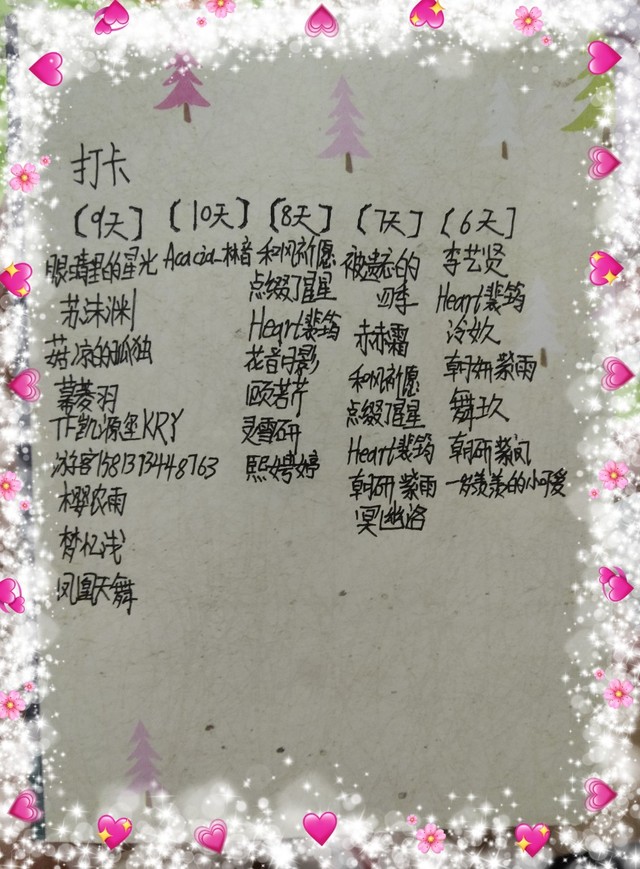 打卡
【9天】
眼睛里的星光
苏沫渊
菇凉的孤独
幕菱羽
TF凯源玺KRY
游客1581373448763
樱农雨
梦忆浅
凤凰天舞
【10天】
Acacia_林音
【8天】
和风祈愿
点缀了星星
Heart裴筠
花音月影
顾若芹
灵雪研
熙娉婷
【7天】
被遗忘的
四季
赫霜
和风祈愿
点缀了星星
Heart裴筠
朝研紫雨
冥幽洛
【6天】
李艺贤
Heart裴筠
泠妏
朝妍紫雨
舞玖
朝研紫
一岁羡羡的小可爱